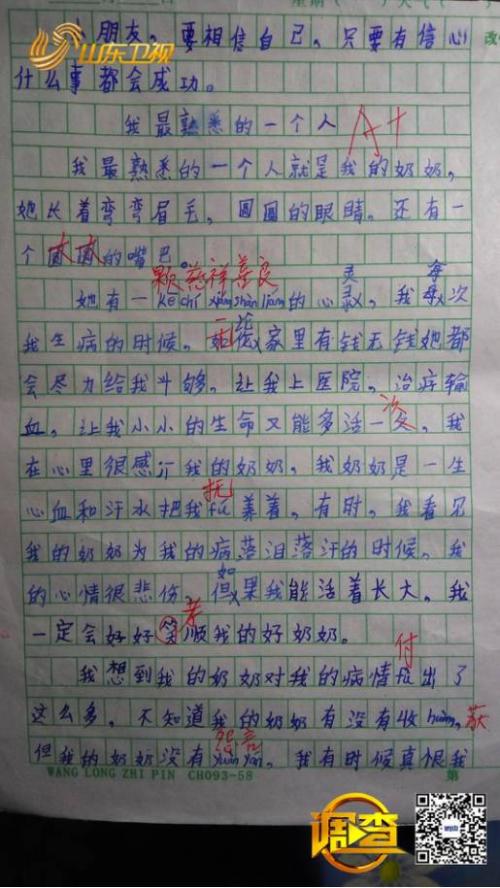 山东卫视
小朋友，要相信自己，只要有信心
什么事都会成功。
我最熟悉的一个人 A+
我最熟悉的一个人就是我的奶奶，
她长着弯弯眉毛，圆圆的眼睛，还有一
个的嘴巴。
颗慈祥善良 灵 每
她有一 kē chí xiáng shàn liáng 的心，我次
我生病的时候，家里有钱无钱她都
会尽力给我斗够，让我上医院，治病输
次
血，让我小小的生命又能多活一，我
在心里很感我的奶奶，我奶奶是一生
抚
心血和汗水把我fǔ养着，有时，我看见
我的奶奶为我的病落泪落汗的时候，我
如
的心情很悲伤，但果我能活着长大，我
孝
一定会好好笑顺我的好奶奶。
付
我想到我的奶奶对我的病情出了
这么多，不知道我的奶奶有没有收huò，获
怨言
但我的奶奶没有yuàn yán，我有时候真恨我
WANG LONG ZHI PIN CH093-58 第
调查